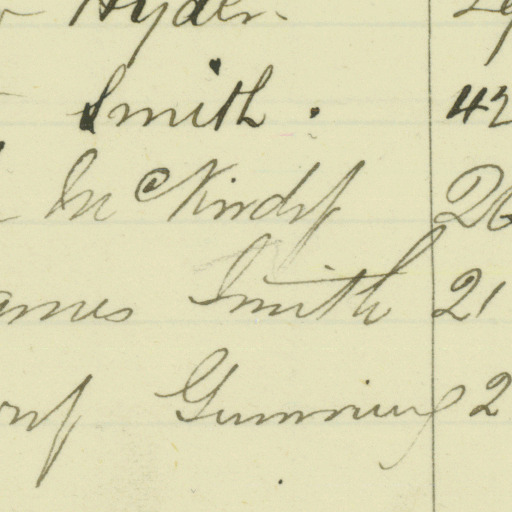 Hyder.
Smith . 42
McKindy 26
ames Smith 21
Gumming 2